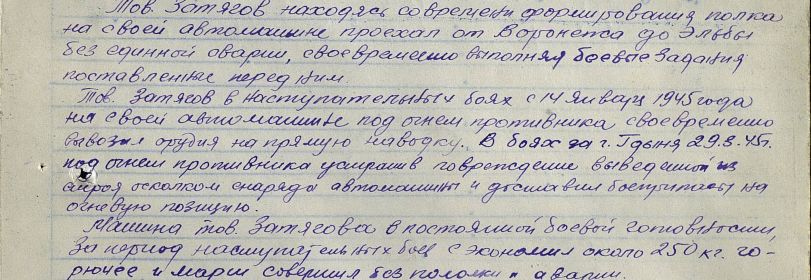 Тов. Затягов находясь современи формирования полка
на своей автомашине проехал от Воронежа до Эльбы
без единной аварии, своевременно выполняя боевые задания
поставленные перед ним.
Тов. Затягов в наступательных боях с 14 января 1945 года
на своей автомашине под огнем противника своевременно
вывозил орудия на прямую наводку. В боях за г. Гдыня 29.3.45г.
под огнем противника устранив повреждение выведенной из
строя осколком снаряда автомашины и доставил боеприпасы на
огневую позицию.
Машина тов. Затягова в постоянной боевой готовности,
за период наступательных боев сэкономил около 250 кг. го-
рючее и марш совершил без поломки и аварии.